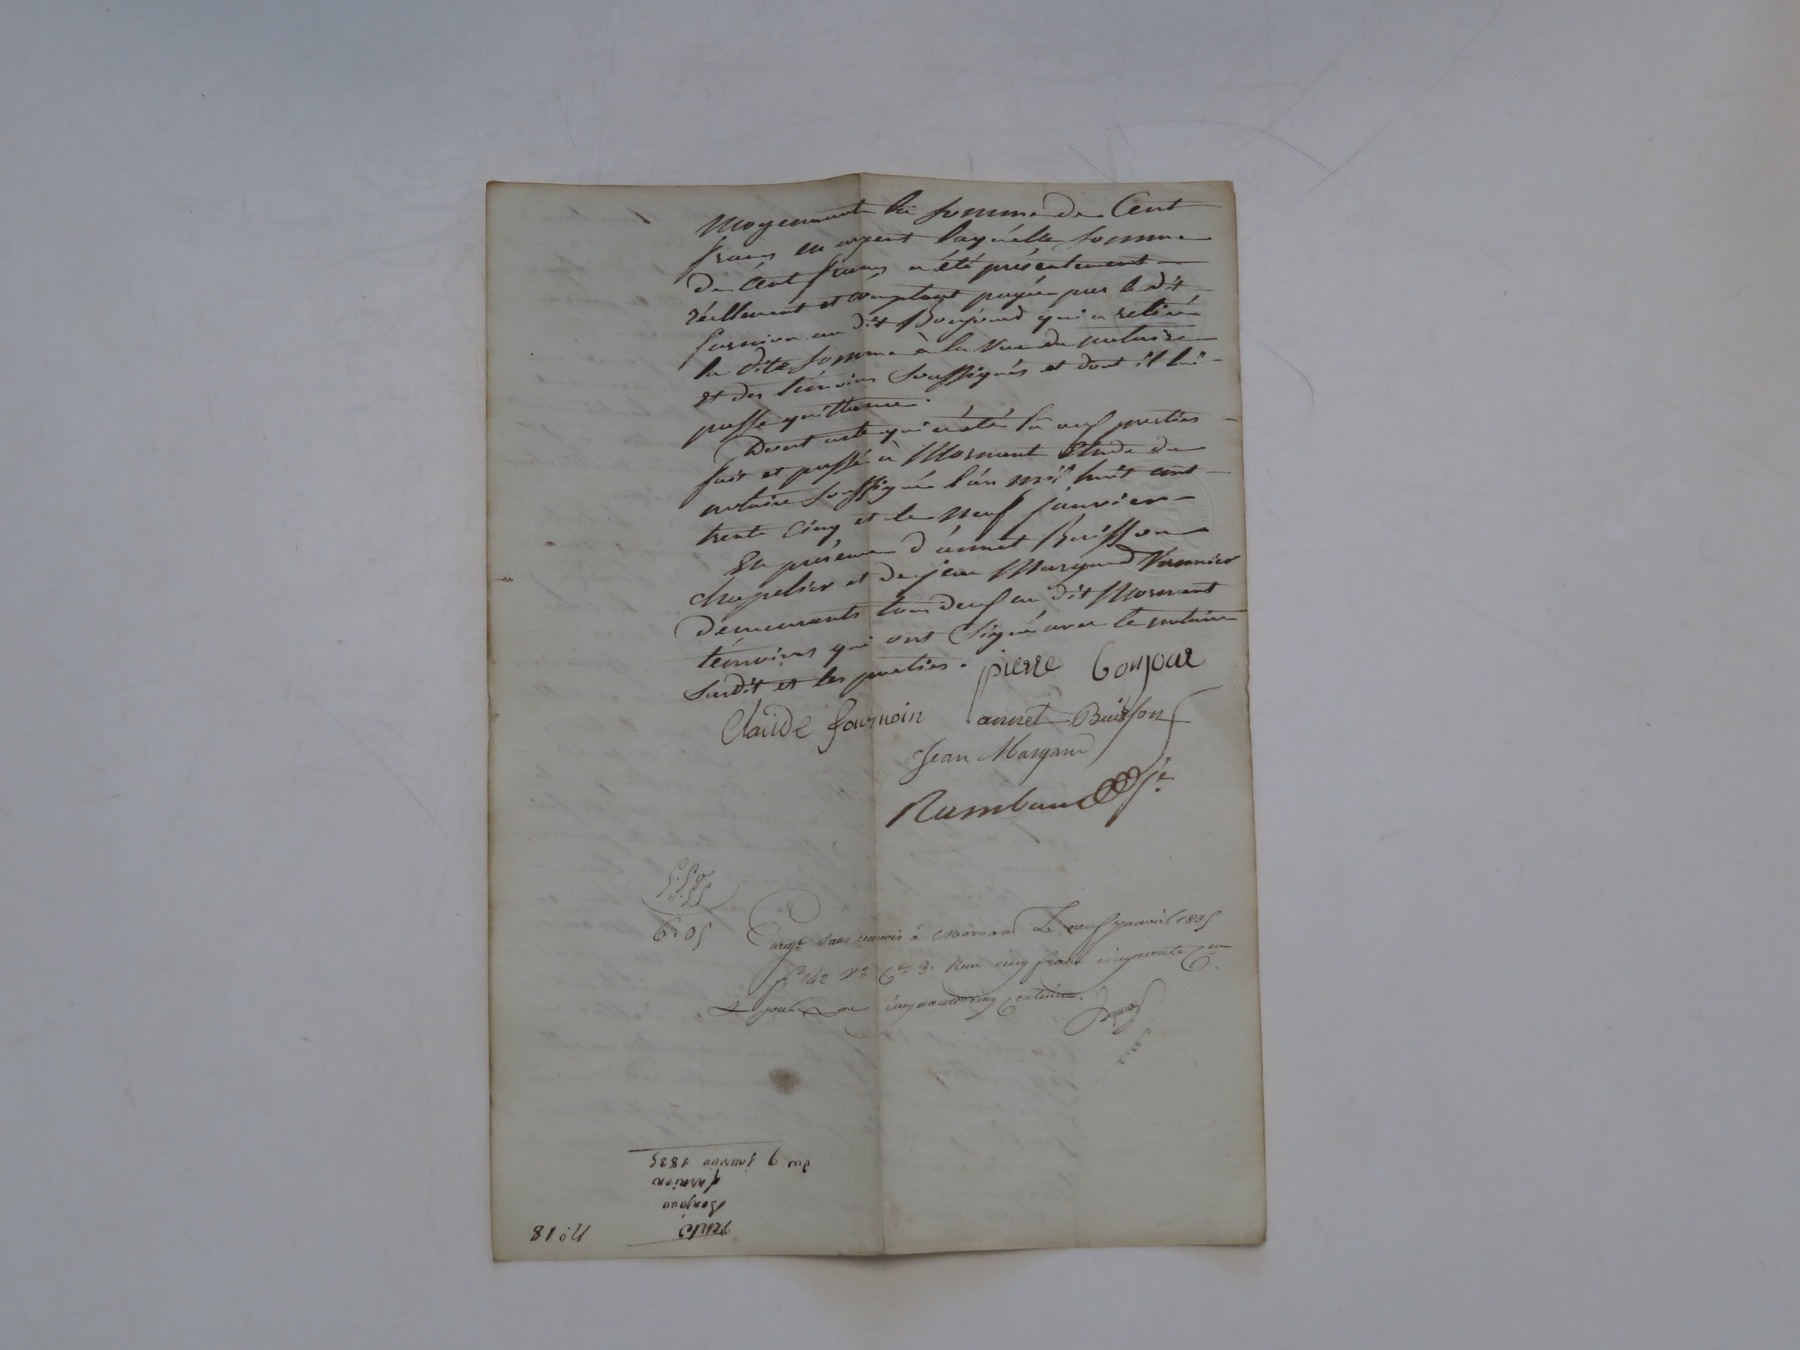 Moyennant la somme de Cent
francs en argent laquelle somme
de Cent francs a été présentement
réellement et comptant payée par le dit
farnion au dit Bonjour qui a retiré
la dite somme à la vue du notaire
et des témoins soussignés et dont il lui
passe quittance.
Dont acte qui a été lu aux parties
fait et passé à Mornant Etude du
notaire soussigné l'an mil huit cent
trente cinq et le neuf janvier
En présence d'annet Buisson
chapelier et de jean Margand Vannier
demeurants tous deux au dit Mornant
témoins qui ont signé avec le notaire
susdit et les parties.
pierre bonjour
Claude fournion annet Buisson
Jean Margand
Rambaud
5.50
".55
6.05
Enregt. sans renvoi à Mornant Le neuf janvier 1835
f° 142 v° Ce 3. Reçu cinq francs cinquante cen
& pour cinquante cinq centimes.
Du 9 janvier 1835
farnion
Bonjour
Vente
N° 18